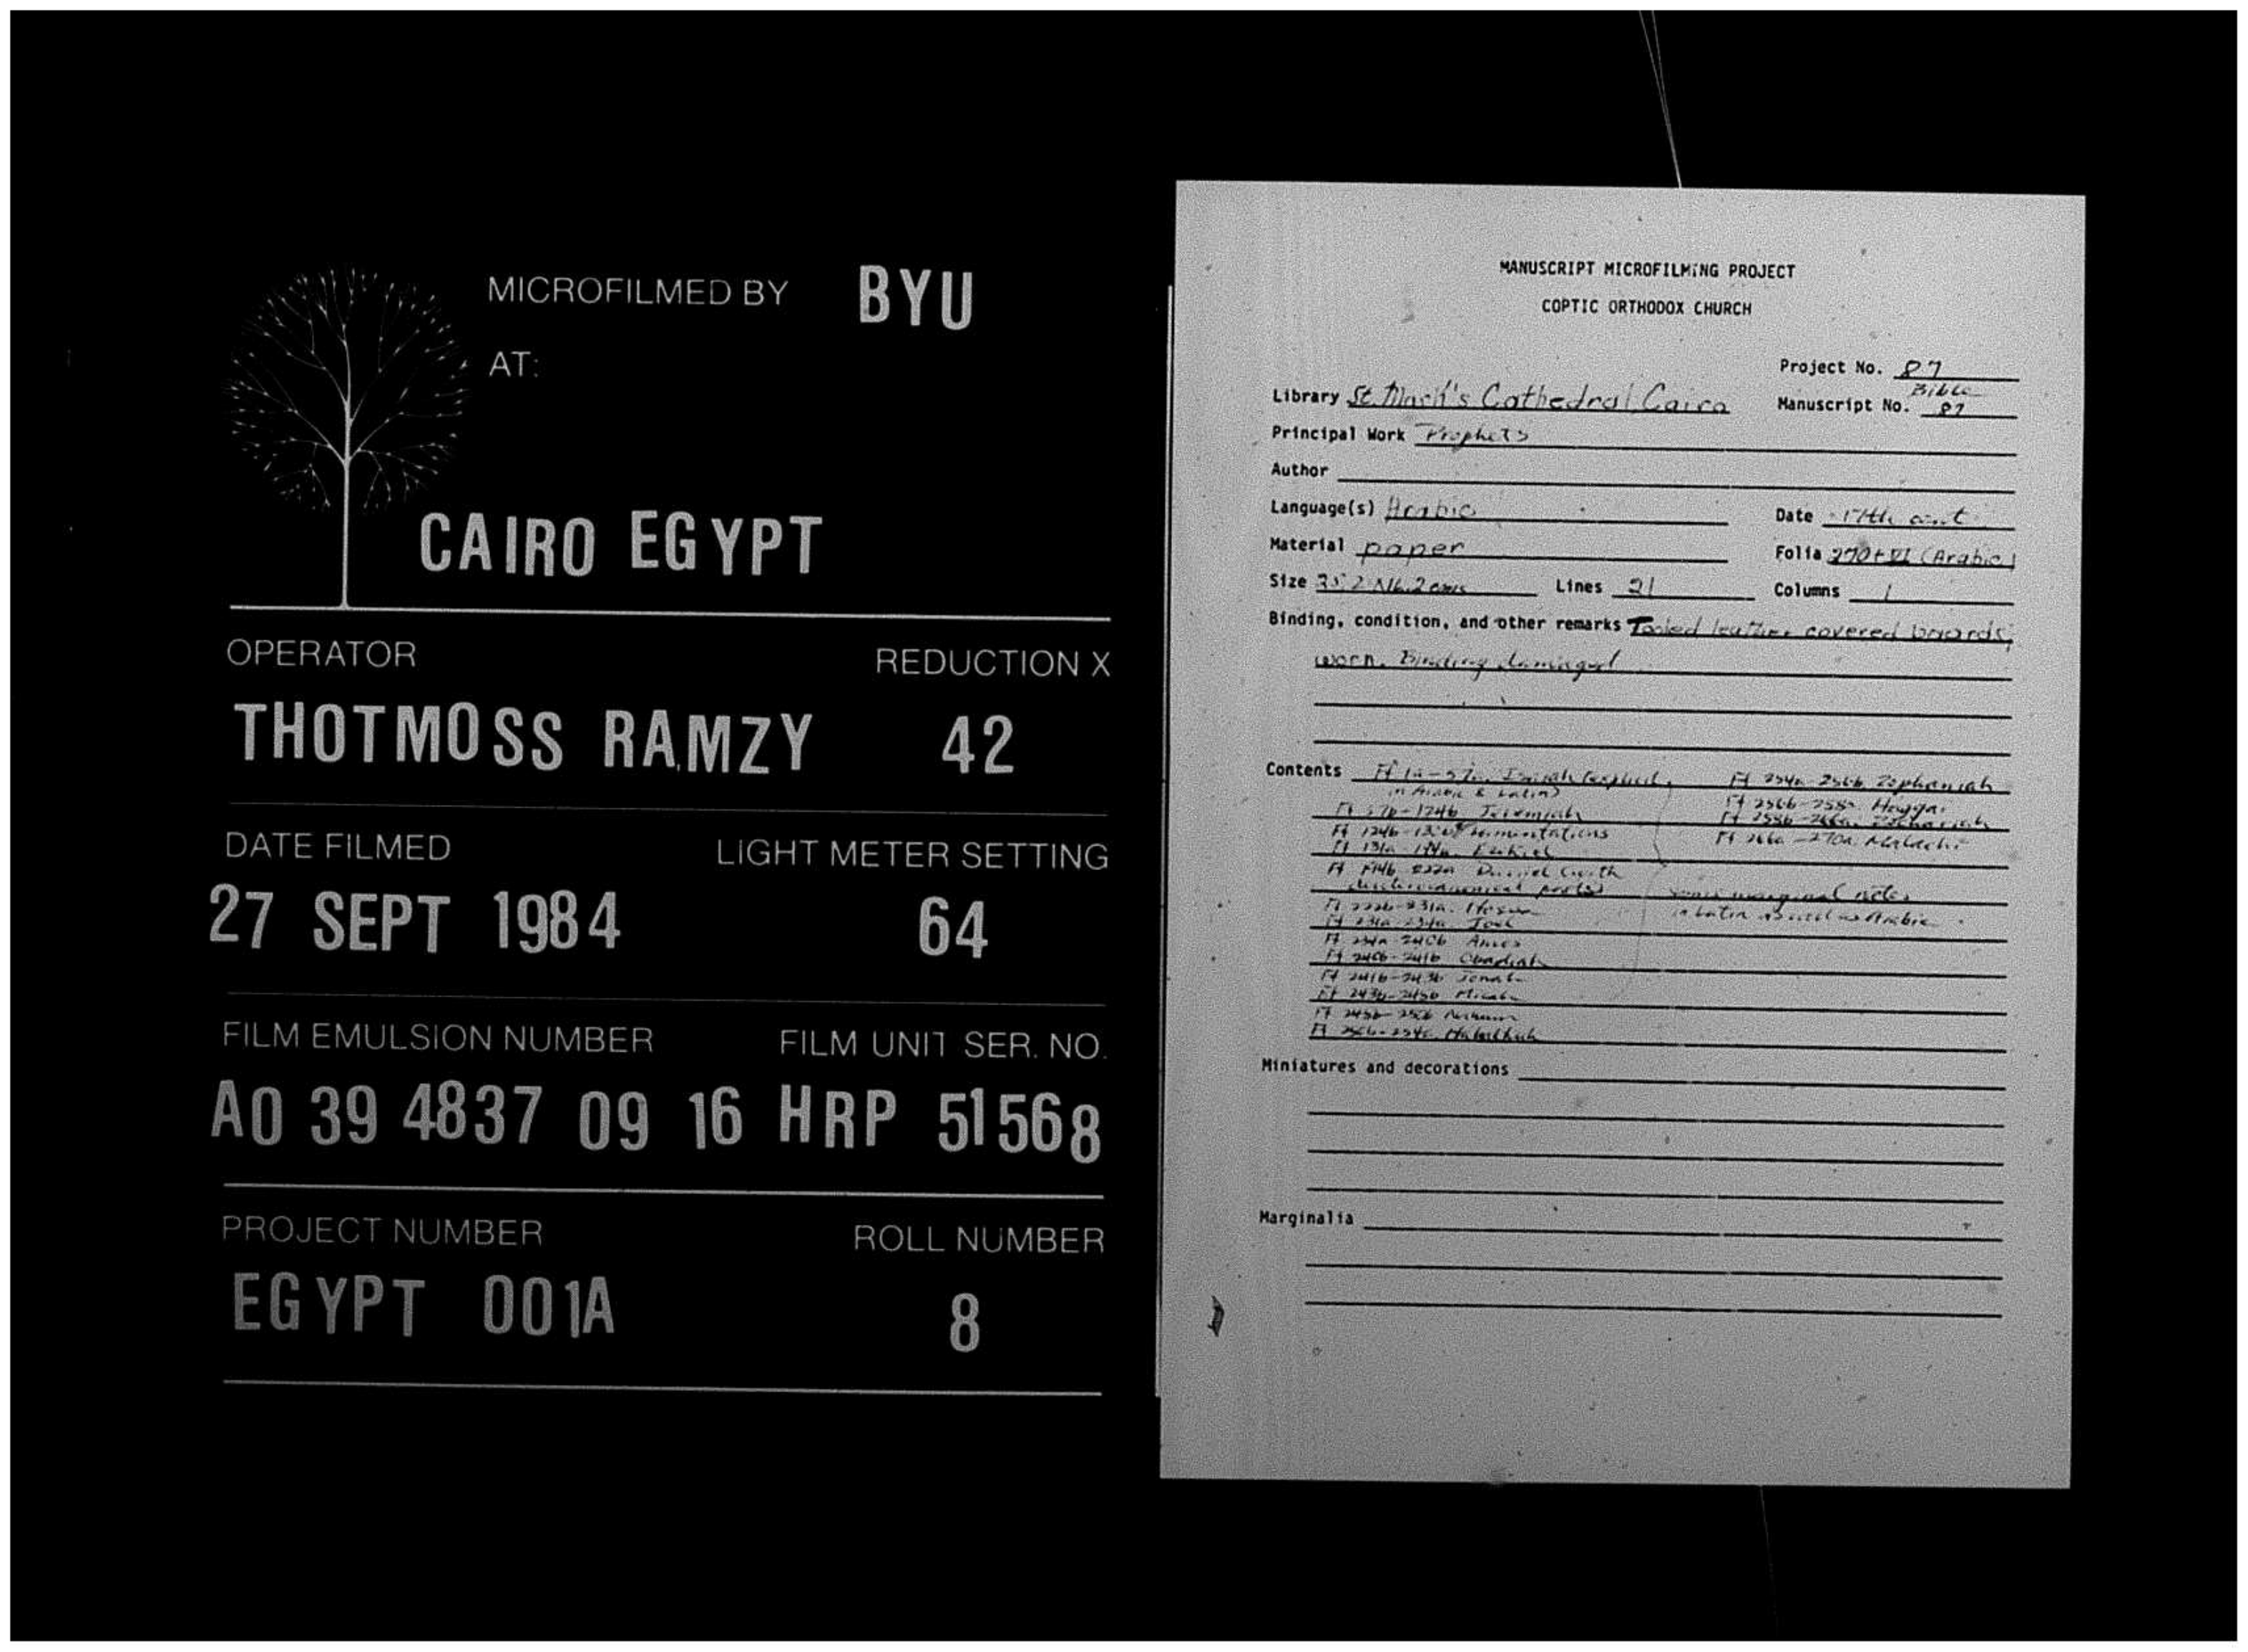 MICROFILMED BY BYU
AT:
CAIRO EGYPT
OPERATOR REDUCTION X
THOTMOSS RAMZY 42
DATE FILMED LIGHT METER SETTING
27 SEPT 1984 64
FILM EMULSION NUMBER FILM UNIT SER. NO.
A0 39 4837 09 16 HRP 51568
PROJECT NUMBER ROLL NUMBER
EGYPT 001A 8
MANUSCRIPT MICROFILMING PROJECT
COPTIC ORTHODOX CHURCH
Project No. 87
Library St. Mark's Cathedral Cairo Manuscript No. Bible 87
Principal Work Prophets
Author
Language(s) Arabic Date 17th cent
Material paper Folia 270 + VI (Arabic)
Size Lines 21 Columns 1
Binding, condition, and other remarks Tooled leather covered boards,
worn. Binding damaged
Contents Ff 1a-57a Isaiah
in Arabic & Latin)
Ff 57b-124b Jeremiah
Ff Lamentations
Ff 131a Ezekiel
Ff Daniel (with
deuterocanonical parts)
Ff 222b-231a. Hosea
Ff 231a-234a. Joel
Ff 234a-240b Amos
Ff 240b-241b Obadiah
Ff 241b-243b Jonah
Ff Micah
Ff Nahum
Ff Habakkuk
Ff 254a-256b Zephaniah
Ff 256b-258b Haggai
Ff 258b-266a. Zechariah
Ff 266a-270a Malachi
Some marginal notes
in Latin as well as Arabic.
Miniatures and decorations
Marginalia